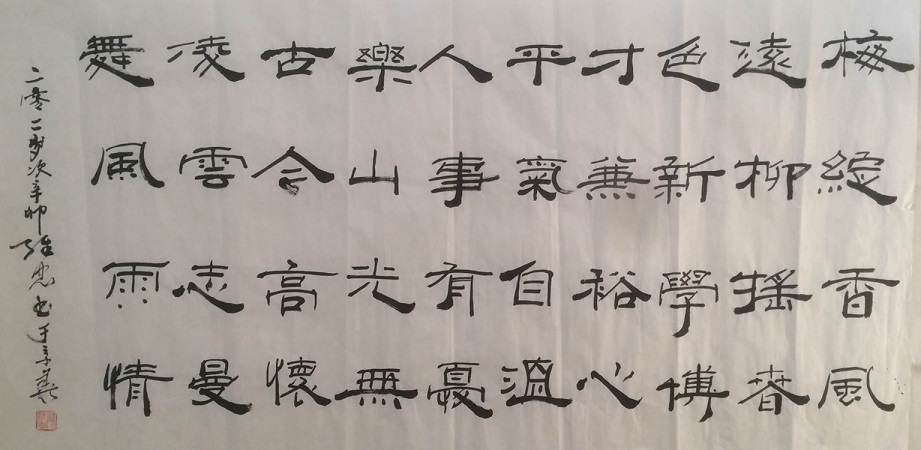 梅綻香風
遠柳搖春
色新學博
才兼裕心
平氣自溫
人事有憂
樂山光無
古今高懷
凌雲志曼
舞風雨情
二零一一歲次辛卯 忠書于京華